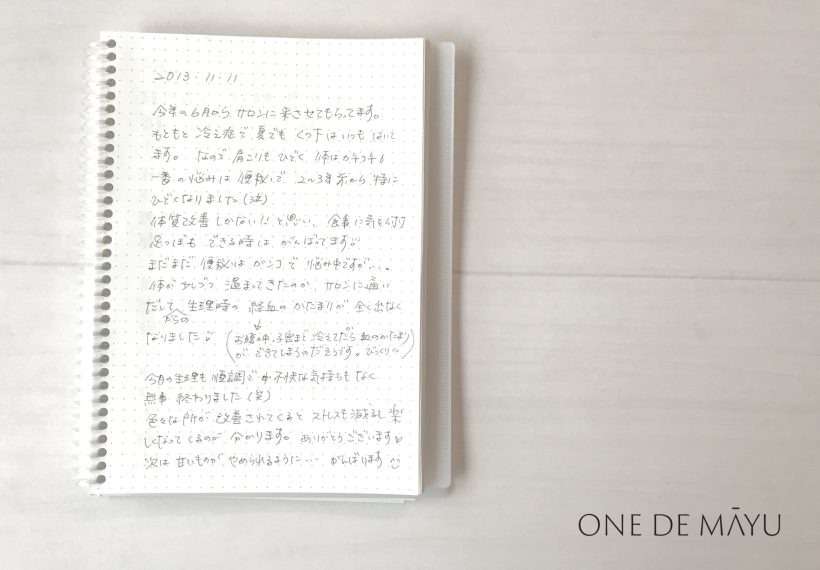 2013.11.11
今年の6月から サロンに来させてもらってます。
もともと 冷え症で 夏でも くつ下は いつも はいて
ます。 なので 肩こりも ひどく 体はカチコチ
一番の悩みは 便秘で、2〜3年前から 特に
ひどくなりました(泣)
体質改善しかない!! と思い、食事に気を付け
足つぼも できる時は がんばってます
まだまだ 便秘は ガンコで 悩み中ですが…。
体が 少しづつ 温まってきたのか、サロンに通い
だして 生理時の 経血の かたまりが 全く出なく
からの
なりました (お腹の中、子宮まで 冷えてたら 血のかたまり
が できてしまうのだそうです。びっくり〜)
今月の生理も 順調で 不快な気持ちもなく
無事 終わりました(笑)
色々な所が 改善されてくると ストレスも減るし 楽
しくなってくるのが 分かります。 ありがとうございます
次は 甘いものが やめられるように… がんばります
ONE DE MĀYU